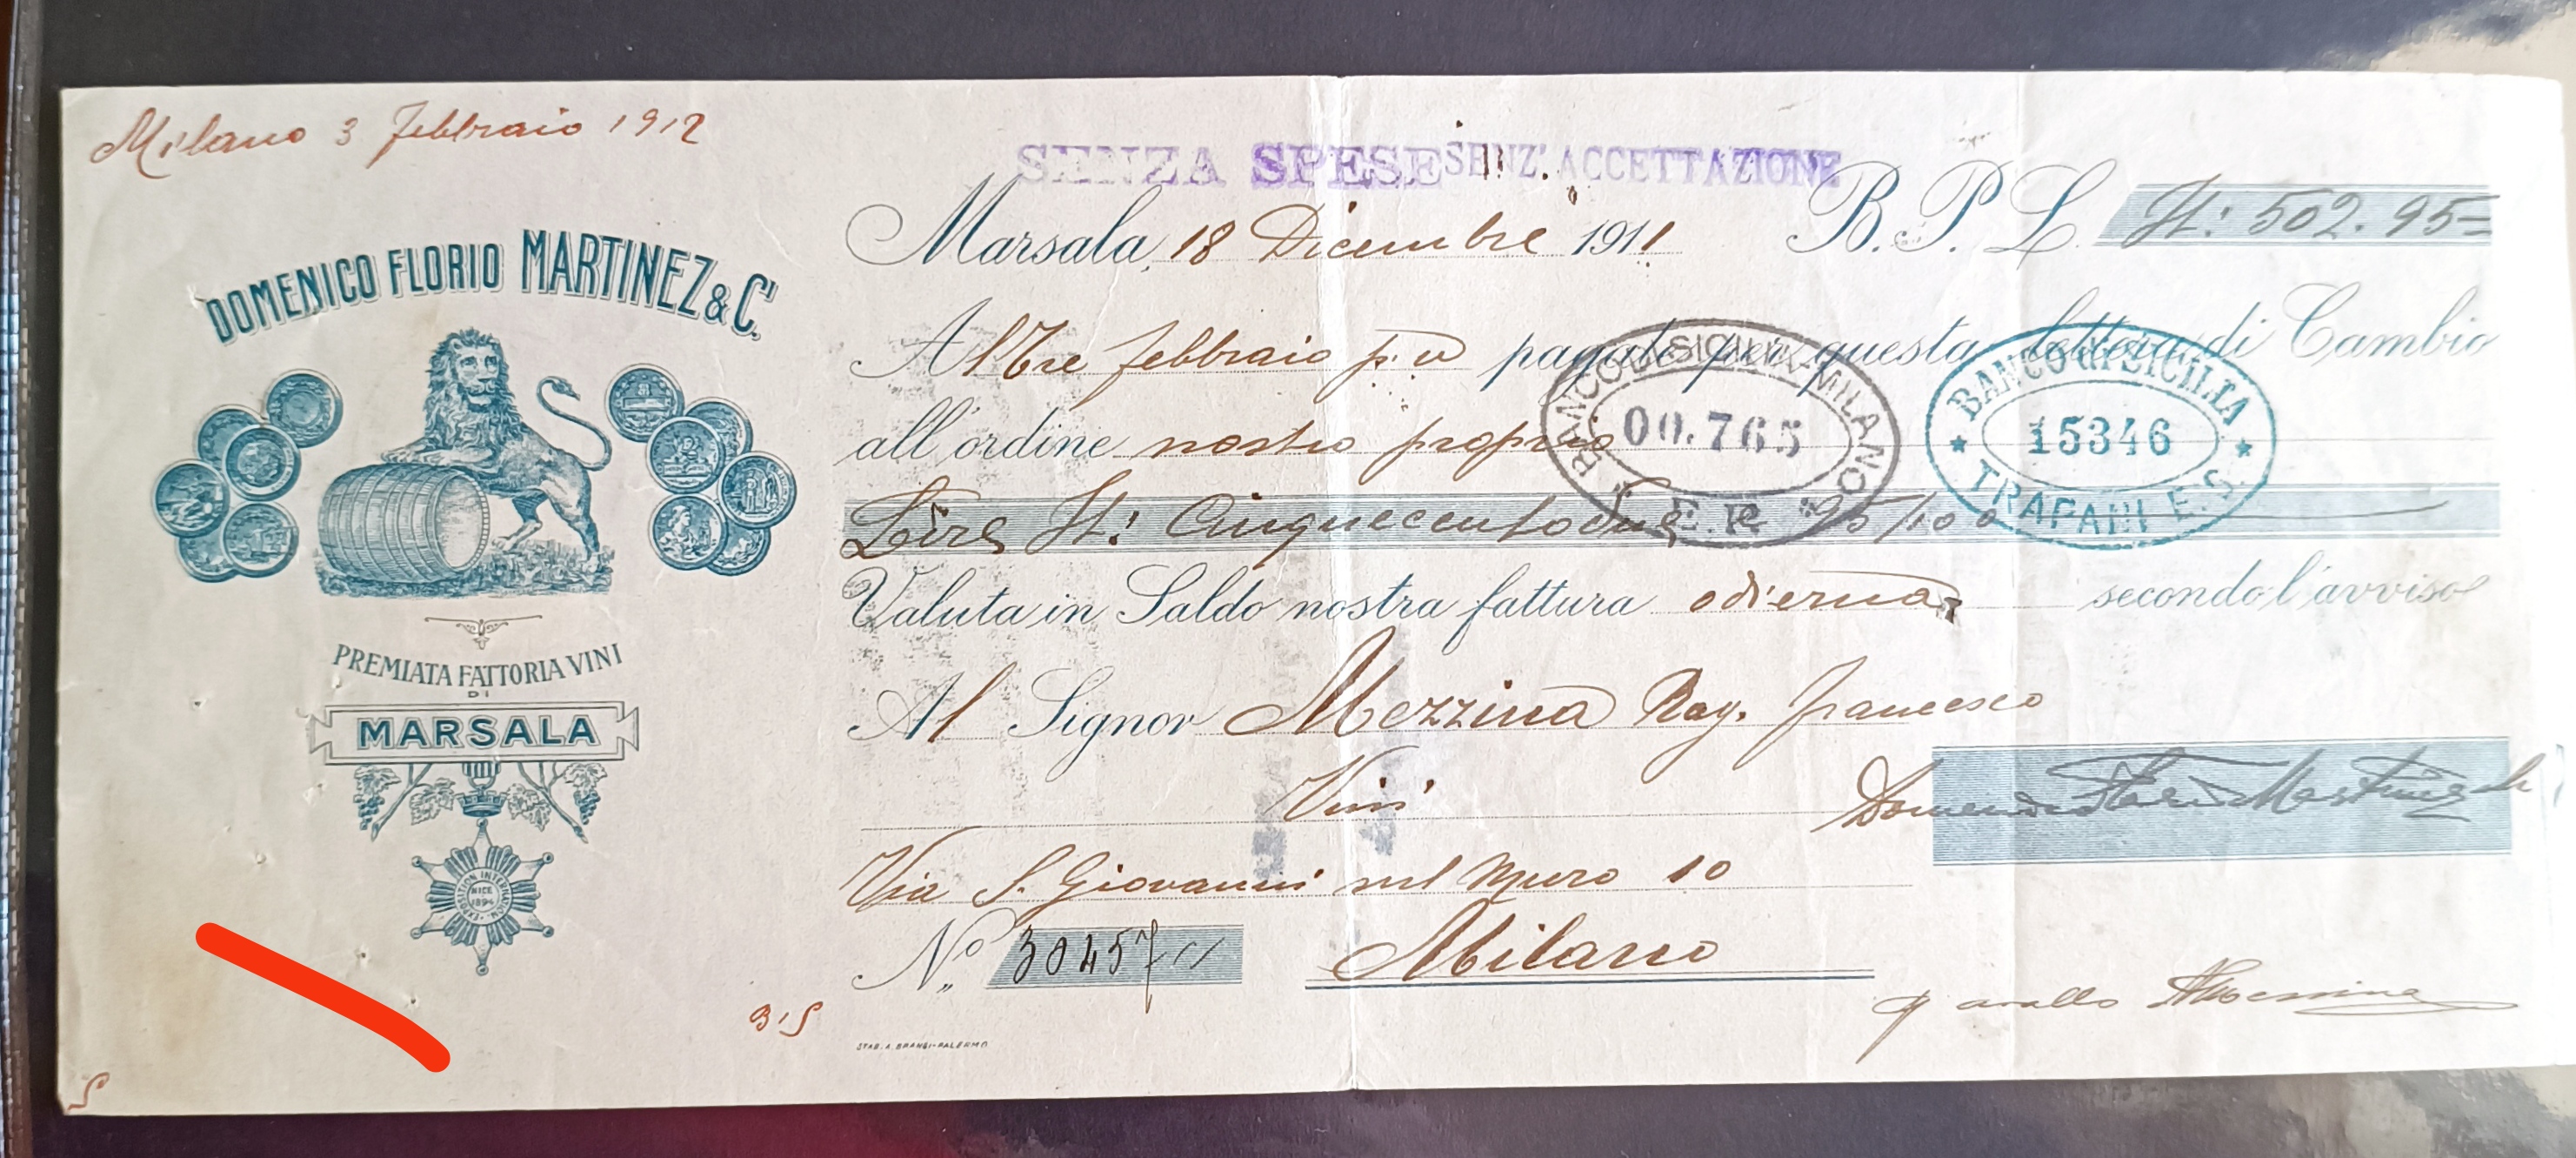 Milano 3 Febbraio 1912
SENZA SPESE SENZ'ACCETTAZIONE
Marsala, 18 Dicembre 1911 B. P. L. It: 502.95=
DOMENICO FLORIO MARTINEZ & C.i
Al Tre febbraio p. v pagate per questa lettera di Cambio
all'ordine nostro proprio
BANCO DI SICILIA MILANO
00.765
E.R
BANCO DI SICILIA
15346
TRAPANI E.S.
Lire It: Cinquecentodue e 95/100
Valuta in Saldo nostra fattura odierna secondo l'avviso
PREMIATA FATTORIA VINI
DI
MARSALA
Al Signor Mezzina Rag. Francesco
Vini
Domenico Florio Martinez & Ci
Via S. Giovanni sul Muro 10
EXPOSITION INTERNATION.
NICE
1894
No 30457 Milano
p avallo
3'S
STAB. A. BRANGI-PALERMO
S